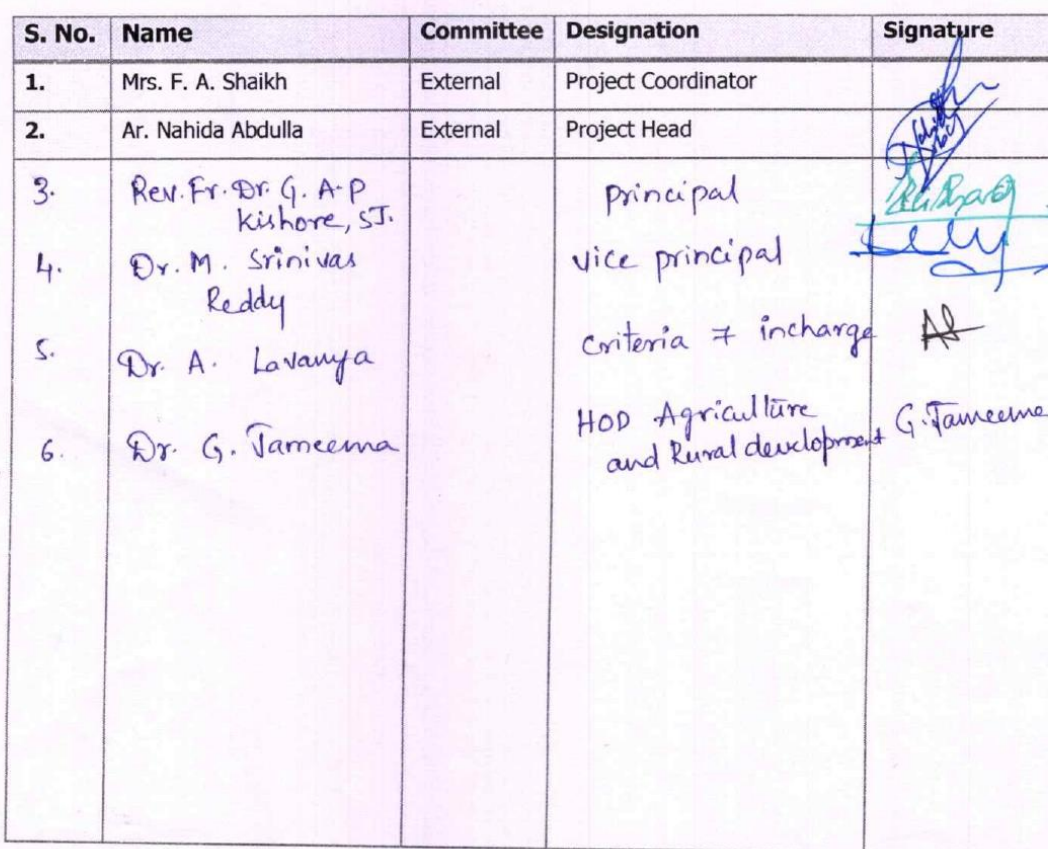 S. No. Name Committee Designation Signature
1. Mrs. F. A. Shaikh External Project Coordinator
2. Ar. Nahida Abdulla External Project Head
3. Rev. Fr. Dr. G. A. P Principal
Kishore, SJ.
4. Dr. M. Srinivas vice principal
Reddy
5. Dr. A. Lavanya Criteria 7 incharge
6. Dr. G. Tameema HOD Agriculture G. Tameema
and Rural development